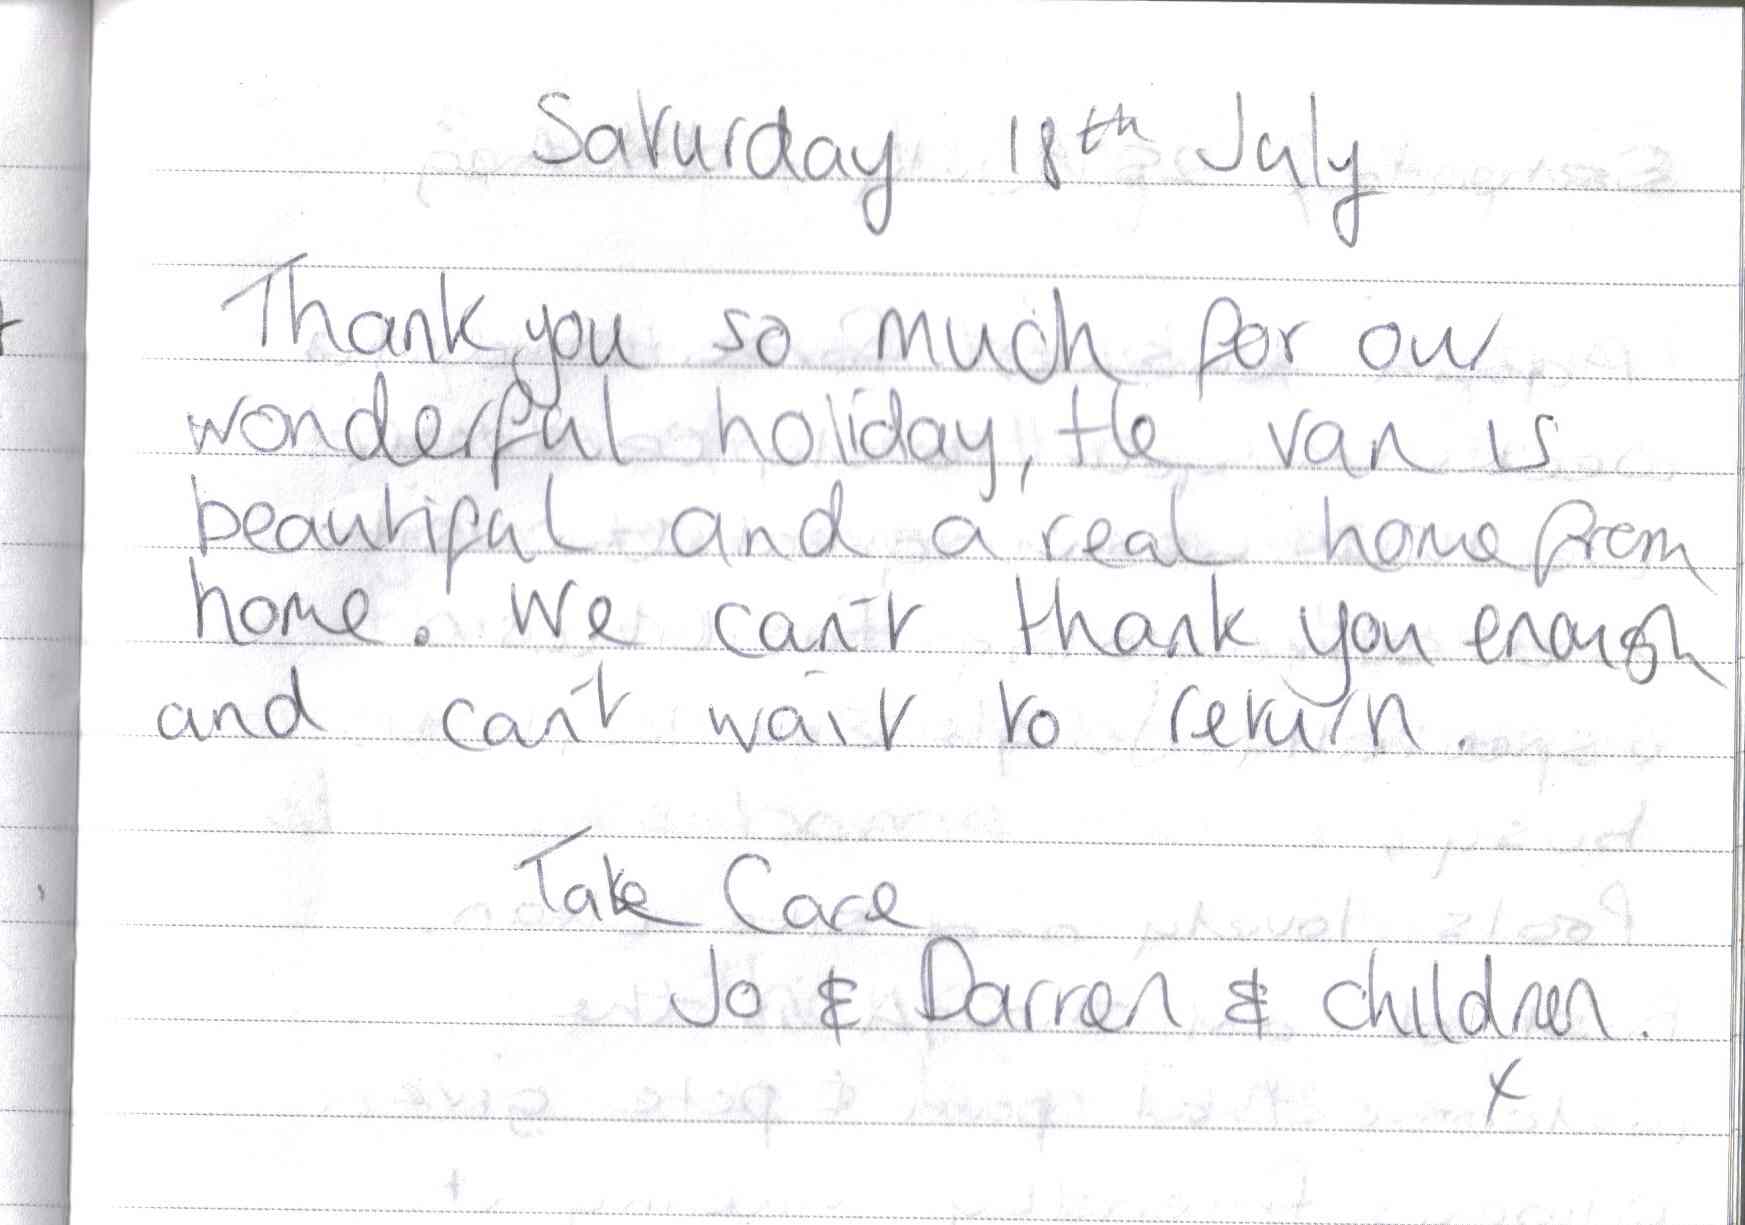 Saturday 18th July
Thank you so much for our
wonderful holiday, the van is
beautiful and a real home from
home. We can't thank you enough
and can't wait to return.
Take Care
Jo & Darren & children.
x